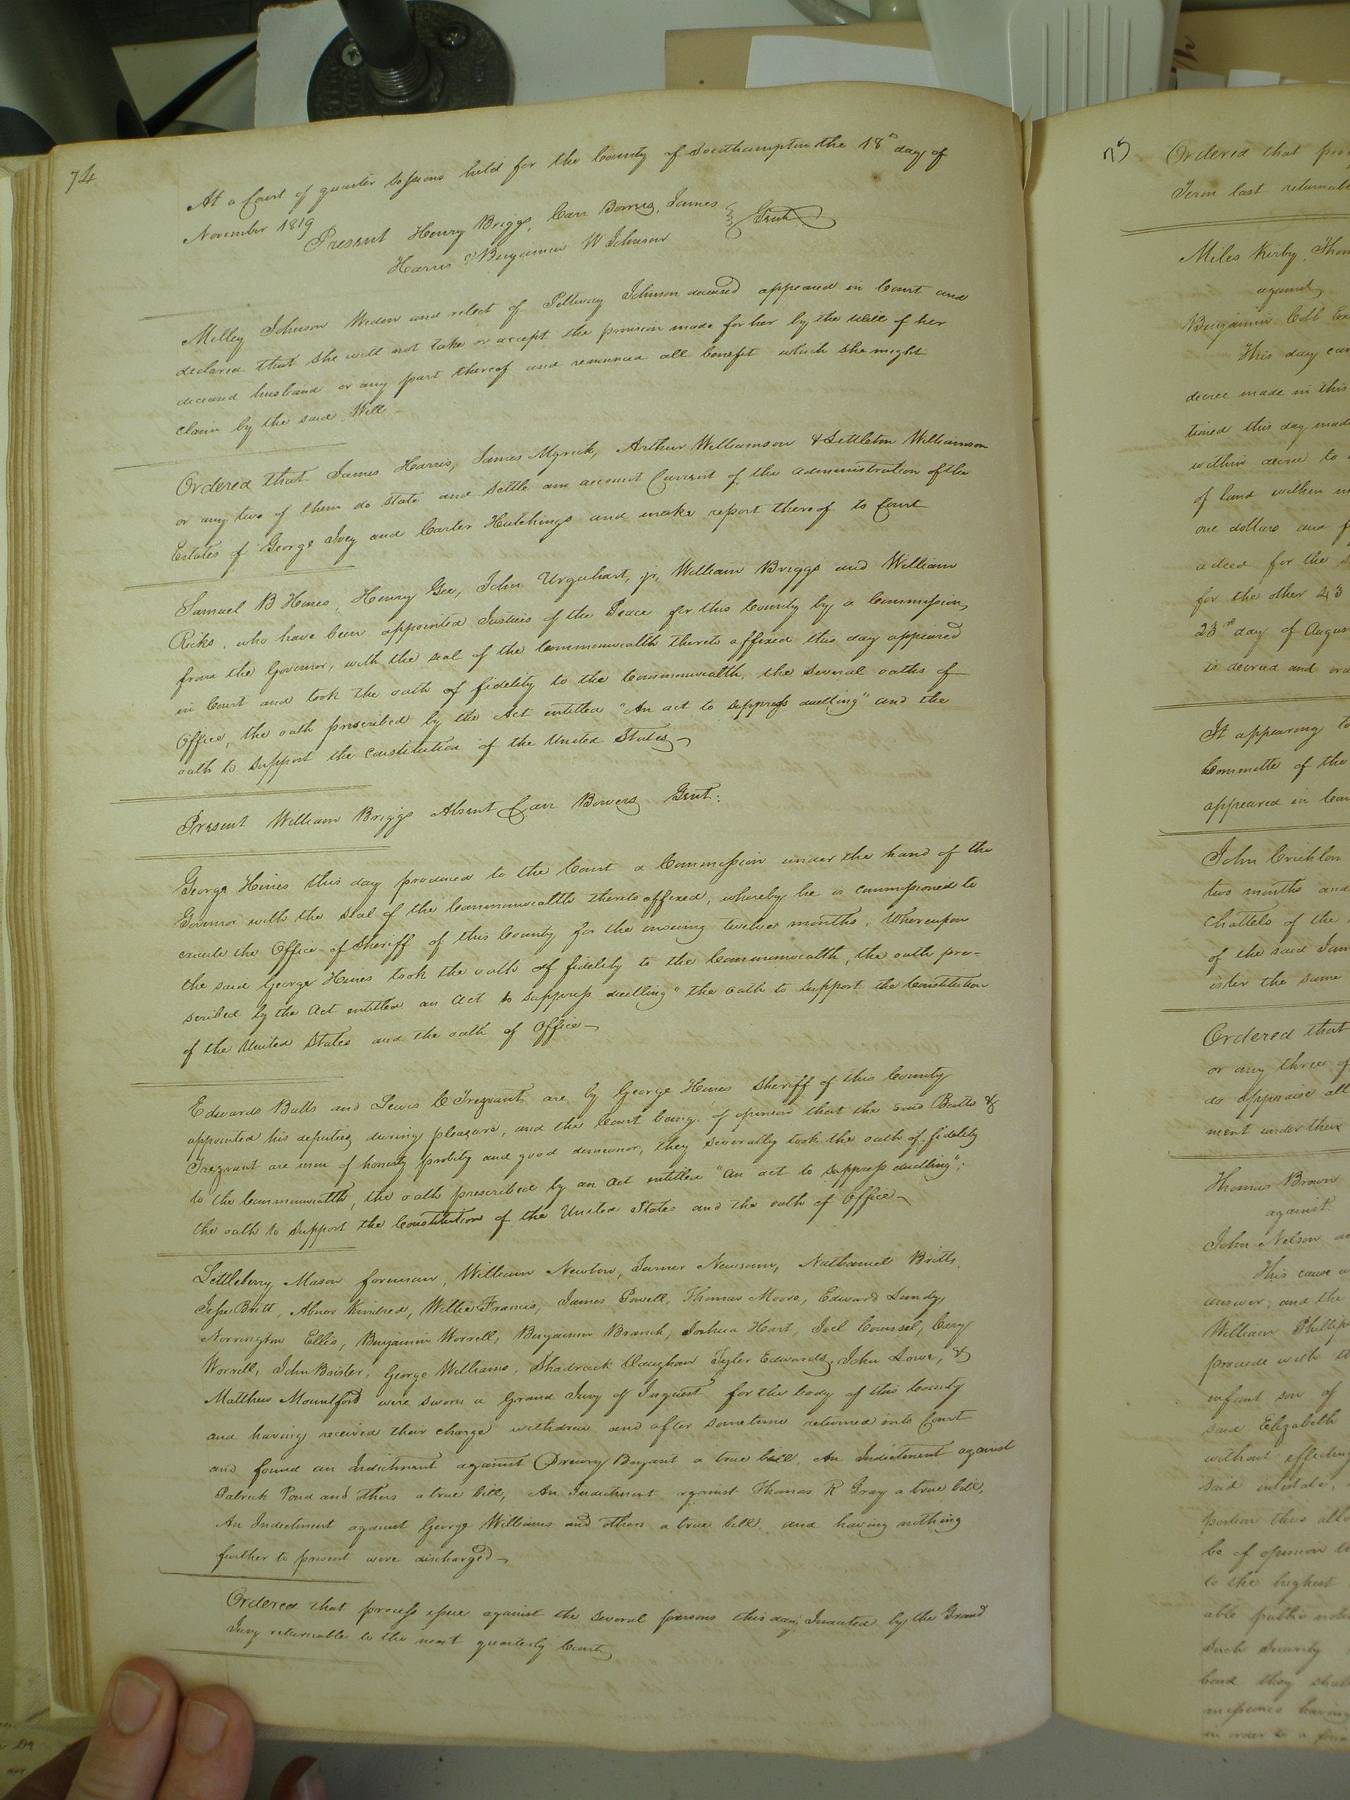 74
At a Court of quarter Sessions held for the County of Southampton the 18th day of
November 1819
Present Henry Briggs, Carr Bowers, James
Harris & Benjamin W Johnson } Gent
Milley Johnson Widow and relict of Pettway Johnson deceased appeared in Court and
declared that she will not take or accept the provision made for her by the will of her
deceased husband or any part thereof and renounced all benefit which she might
claim by the said Will
Ordered that James Harris, James Myrick, Arthur Williamson & Littleton Williamson
or any two of them do state and settle an account Current of the administration of the
Estates of George Ivey and Carter Hutchings and make report thereof to Court
Samuel B Hines, Henry Gee, John Urquhart, jr, William Briggs and William
Ricks, who have been appointed Justices of the Peace for this County by a Commission
from the Governor, with the seal of the Commonwealth thereto affixed this day appeared
in Court and took the oath of fidelity to the Commonwealth, the several oaths of
Office, the oath prescribed by the Act entitled "An act to suppress duelling" and the
oath to support the constitution of the United States
Present William Briggs Absent Carr Bowers Gent:
George Hines this day produced to the Court a Commission under the hand of the
Governor with the seal of the Commonwealth thereto affixed, whereby he is commissioned to
execute the Office of Sheriff of this County for the ensuing twelve months. Whereupon
the said George Hines took the oath of fidelity to the Commonwealth, the oath pre-
scribed by the Act entitled an Act to suppress duelling" the oath to support the Constitution
of the United States and the oath of Office
Edwards Butts and Lewis C Trezvant are by George Hines Sheriff of this County
appointed his deputies during pleasure, and the Court being of opinion that the said Butts &
Trezvant are men of honesty probity and good demeanor, they severally took the oath of fidelity
to the Commonwealth, the oath prescribed by an Act entitled "An act to suppress duelling";
the oath to support the Constitution of the United States and the oath of Office
Littleberry Mason foreman, William Newton, Turner Newsum, Nathaniel Britt,
Jesse Britt, Abner Kindred, Willie Francis, James Powell, Thomas Moore, Edward Lundy,
Norrington Ellis, Benjamin Worrell, Benjamin Branch, Joshua Hart, Joel Counsel, Cary
Worrell, John Brister, George Williams, Shadrack Vaughan Tyler Edwards, John Lowe, &
Matthew Mountford were sworn a Grand Jury of Inquest for the body of this County
and having received their charge withdrew and after sometime returned into Court
and found an Indictment against Drewry Bryant a true bill, An Indictment against
Patrick Pond and others a true bill, An Indictment against Thomas R Gray a true bill,
An Indictment against George Williams and others a true bill, and having nothing
further to present were discharged
Ordered that process issue against the several persons this day Indicted by the Grand
Jury returnable to the next quarterly Court
75
Ordered that
Term last returnable
Miles Kirby,
against
Benjamin Cobb
This day
decree made in this
tioned this day made
within decree to
of land within
one dollars and
a deed for the
for the other 23
23rd day of August
is decreed and
It appearing
Committe of the
appeared in
John Crichlow
two months and
chattels of the
of the said
ister the same
Ordered that
or any three of
do appraise all
ment under their
Thomas Brown
against
John Nelson
This cause
answer, and the
William Phillips
provide with
infant son of
said Elizabeth
without effecting
said intestate,
portion thus
be of opinion
to the highest
able public
such security
bond they shall
having
in order to a